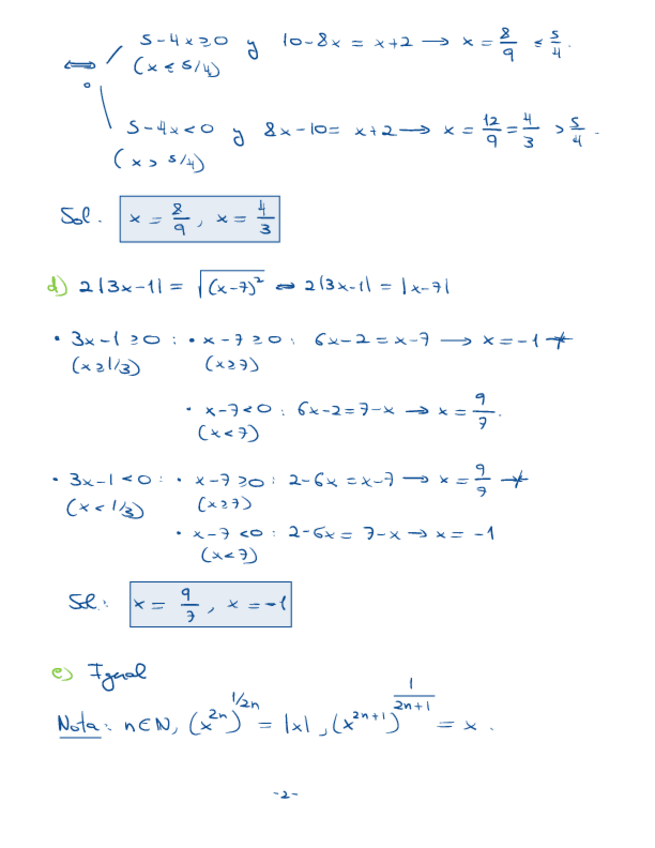 ⟺ 5-4x≥0 y 10-8x = x+2 → x = 8/9 ≤ 5/4.
(x ≤ 5/4)
o
5-4x<0 y 8x-10 = x+2 → x = 12/9 = 4/3 > 5/4.
(x > 5/4)
Sol. x = 8/9, x = 4/3
d) 2|3x-1| = √(x-7)² ⇔ 2|3x-1| = |x-7|
• 3x-1 ≥0 : • x-7 ≥0 : 6x-2 = x-7 → x = -1 ↛
(x≥1/3) (x≥7)
• x-7<0 : 6x-2 = 7-x → x = 9/7.
(x<7)
• 3x-1<0 : • x-7 ≥0 : 2-6x = x-7 → x = 9/7 ↛
(x<1/3) (x≥7)
• x-7 <0 : 2-6x = 7-x → x = -1
(x<7)
Sol: x = 9/7, x = -1
e) Igual
Nota: n∈N, (x²ⁿ)^1/2n = |x|, (x²ⁿ⁺¹)^1/2n+1 = x.
-2-